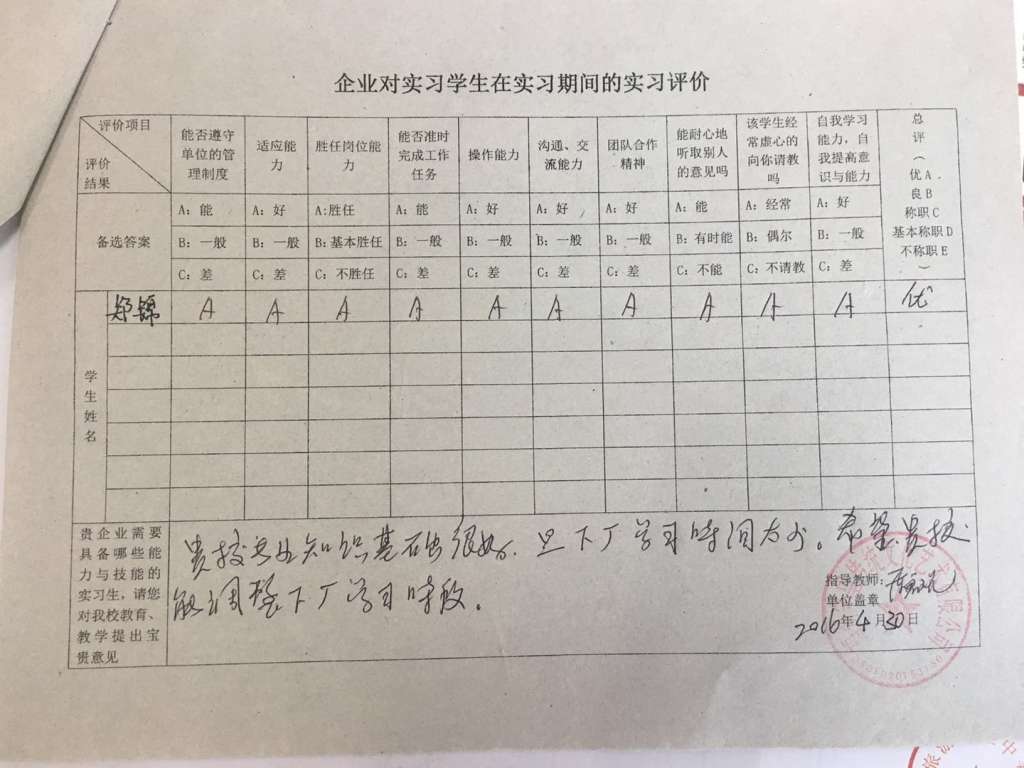 企业对实习学生在实习期间的实习评价
评价项目
评价
结果
能否遵守
单位的管
理制度
适应能
力
胜任岗位能
力
能否准时
完成工作
任务
操作能力
沟通、交
流能力
团队合作
精神
能耐心地
听取别人
的意见吗
该学生经
常虚心的
向你请教
吗
自我学习
能力，自
我提高意
识与能力
总
评
（
优 A
良 B
称职 C
基本称职 D
不称职 E
）
备选答案
A：能
A：好
A:胜任
A：能
A：好
A：好
A：好
A：能
A：经常
A：好
B：一般
B：一般
B:基本胜任
B：一般
B：一般
B：一般
B：一般
B：有时能
B：偶尔
B：一般
C：差
C：差
C：不胜任
C：差
C：差
C：差
C：差
C：不能
C：不请教
C：差
学
生
姓
名
郑锦
A
A
A
A
A
A
A
A
A
A
优
贵企业需要
具备哪些能
力与技能的
实习生，请您
对我校教育、
教学提出宝
贵意见
贵校专业知识基础很好，但下厂学习时间太少。希望贵校
能调整下厂学习时段。
指导教师：
单位盖章
2016年4月30日